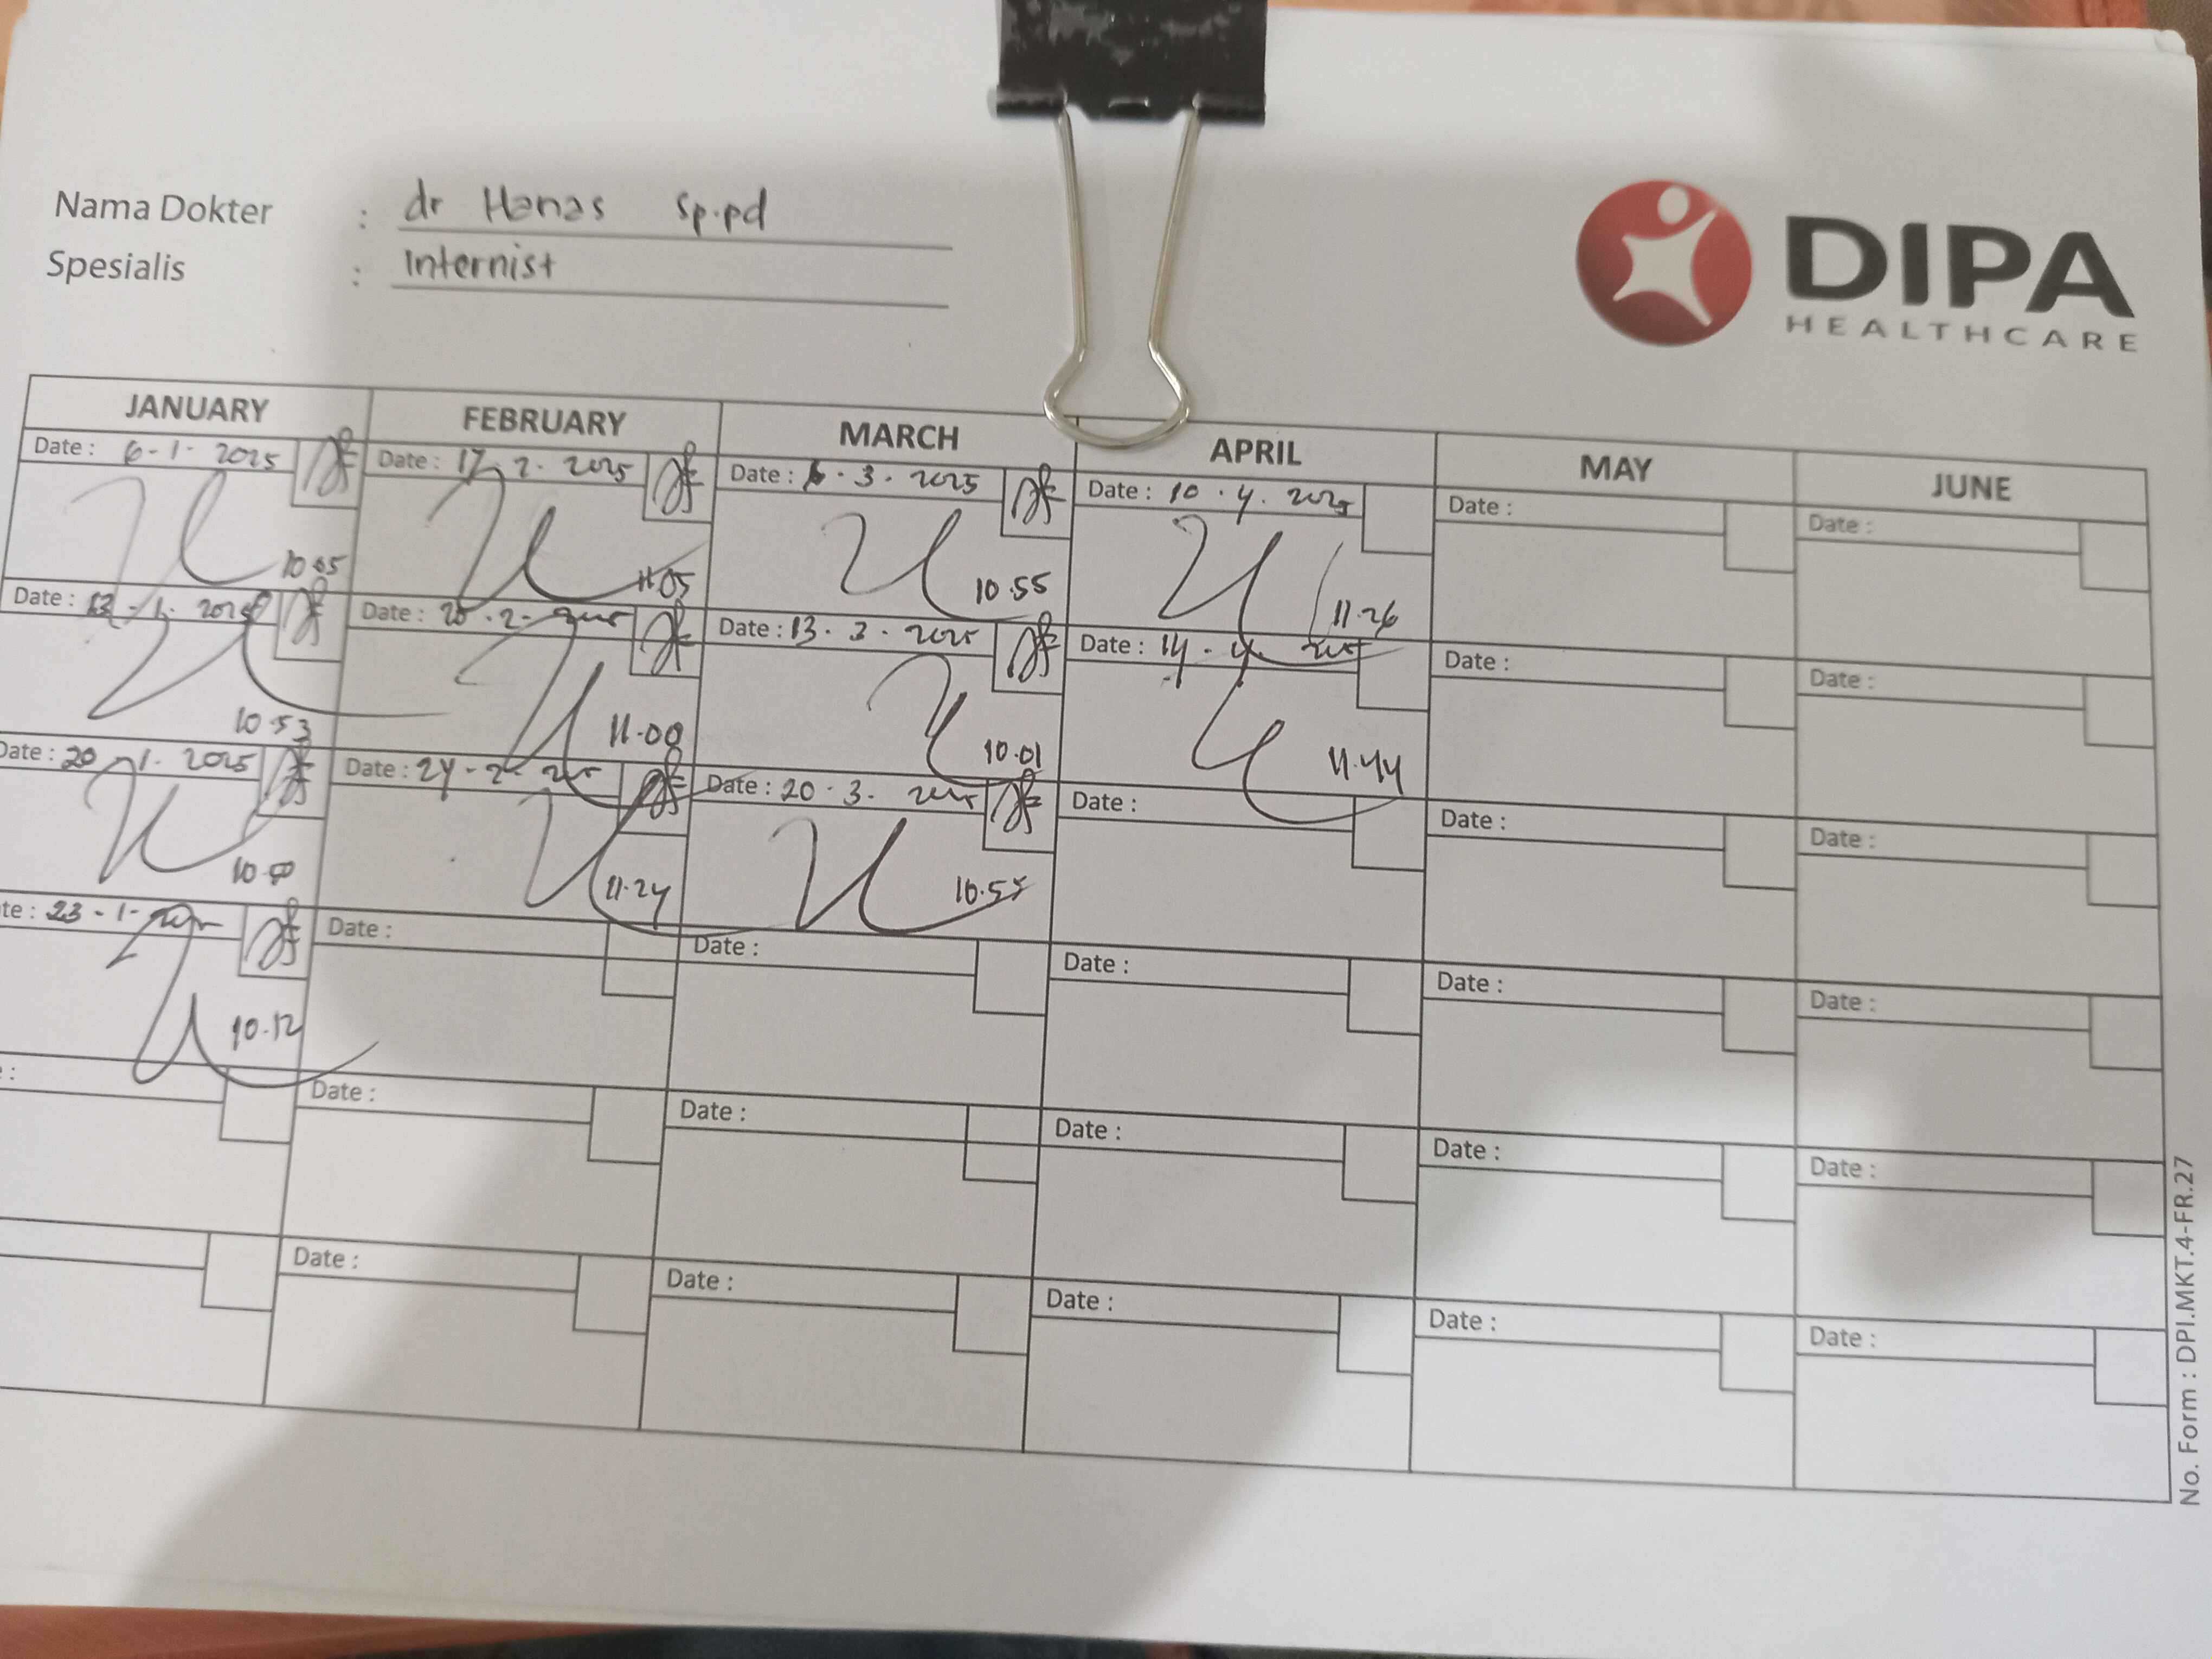 Nama Dokter : dr Hanas Sp.pd
Spesialis : Internist
DIPA
HEALTHCARE
JANUARY FEBRUARY MARCH APRIL MAY JUNE
Date : 6-1-2025 Date : 17.2.2025 Date : 6.3.2025 Date : 10.4.2025 Date : Date :
11.05 10.55 11.26
Date : 13-1-2025 Date : 20.2. Date : 13.3.2025 Date : 14.4. Date : Date :
10.53 11.00 10.01 11.44
Date : 20-1-2025 Date : 24-2- Date : 20.3. Date : Date : Date :
11.24
Date : 23-1- Date : Date : Date : Date : Date :
10.12
: Date : Date : Date : Date : Date :
Date : Date : Date : Date : Date :
No. Form : DPI.MKT.4-FR.27